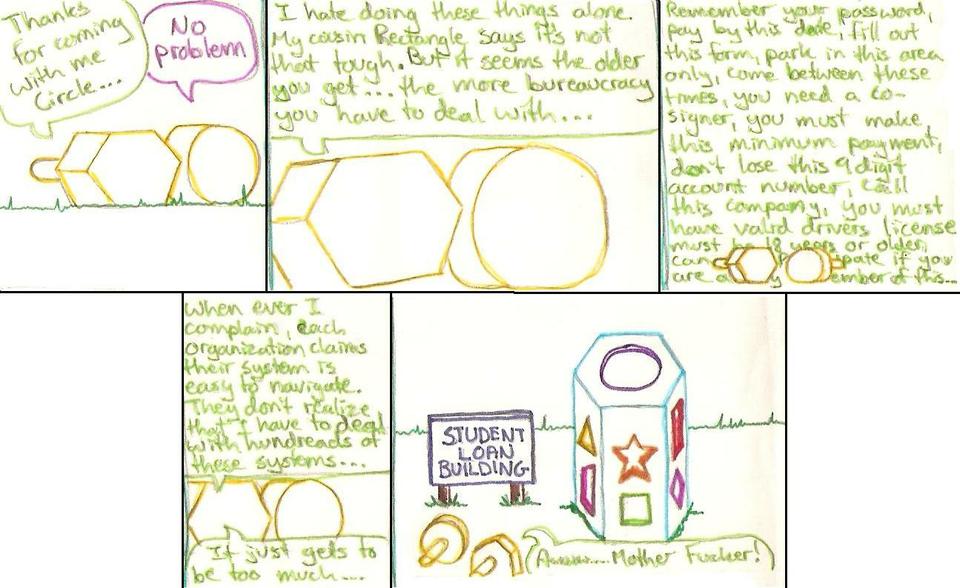 Thanks
for coming
with me
Circle....
No
problem.
I hate doing these things alone.
My cousin Rectangle says it's not
that tough. But it seems the older
you get.... the more bureaucracy
you have to deal with...
Remember your password,
pay by this date, fill out
this form, park in this area
only, come between these
times, you need a co-
signer, you must make
this minimum payment,
don't lose this 9 digit
account number, call
this company, you must
have valid drivers license
must be 18 years or older,
can pate if you
are a y ember of this...
When ever I
complain, each
organization claims
their system is
easy to navigate.
They don't realize
that I have to deal
with hundreads of
these systems...
It just gets to
be too much....
STUDENT
LOAN
BUILDING
Awwww.... Mother Fucker!